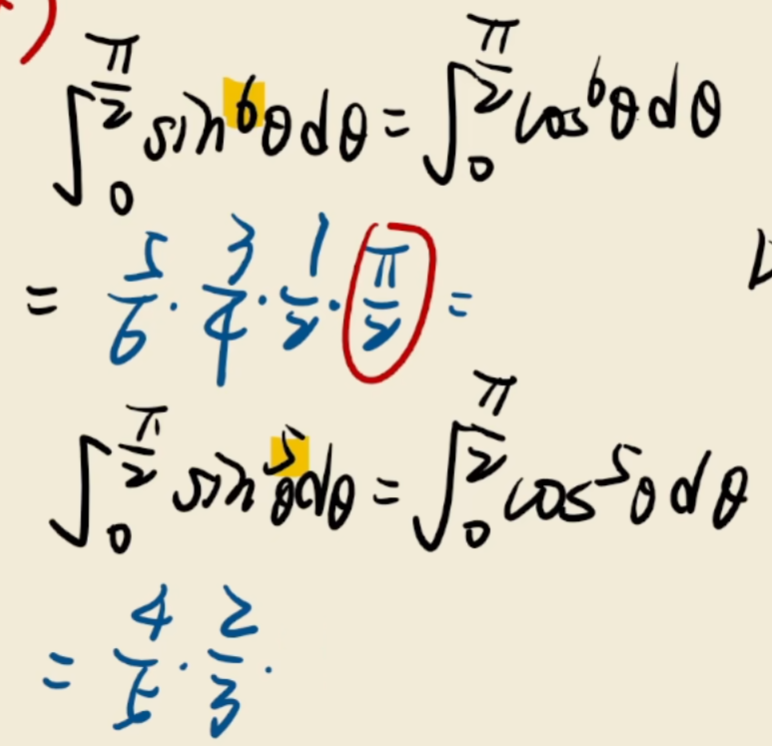 ∫_0^{π/2} sin^6 θ dθ = ∫_0^{π/2} cos^6 θ dθ
= 5/6 · 3/4 · 1/2 · π/2 =
∫_0^{π/2} sin^5 θ dθ = ∫_0^{π/2} cos^5 θ dθ
= 4/5 · 2/3 ·